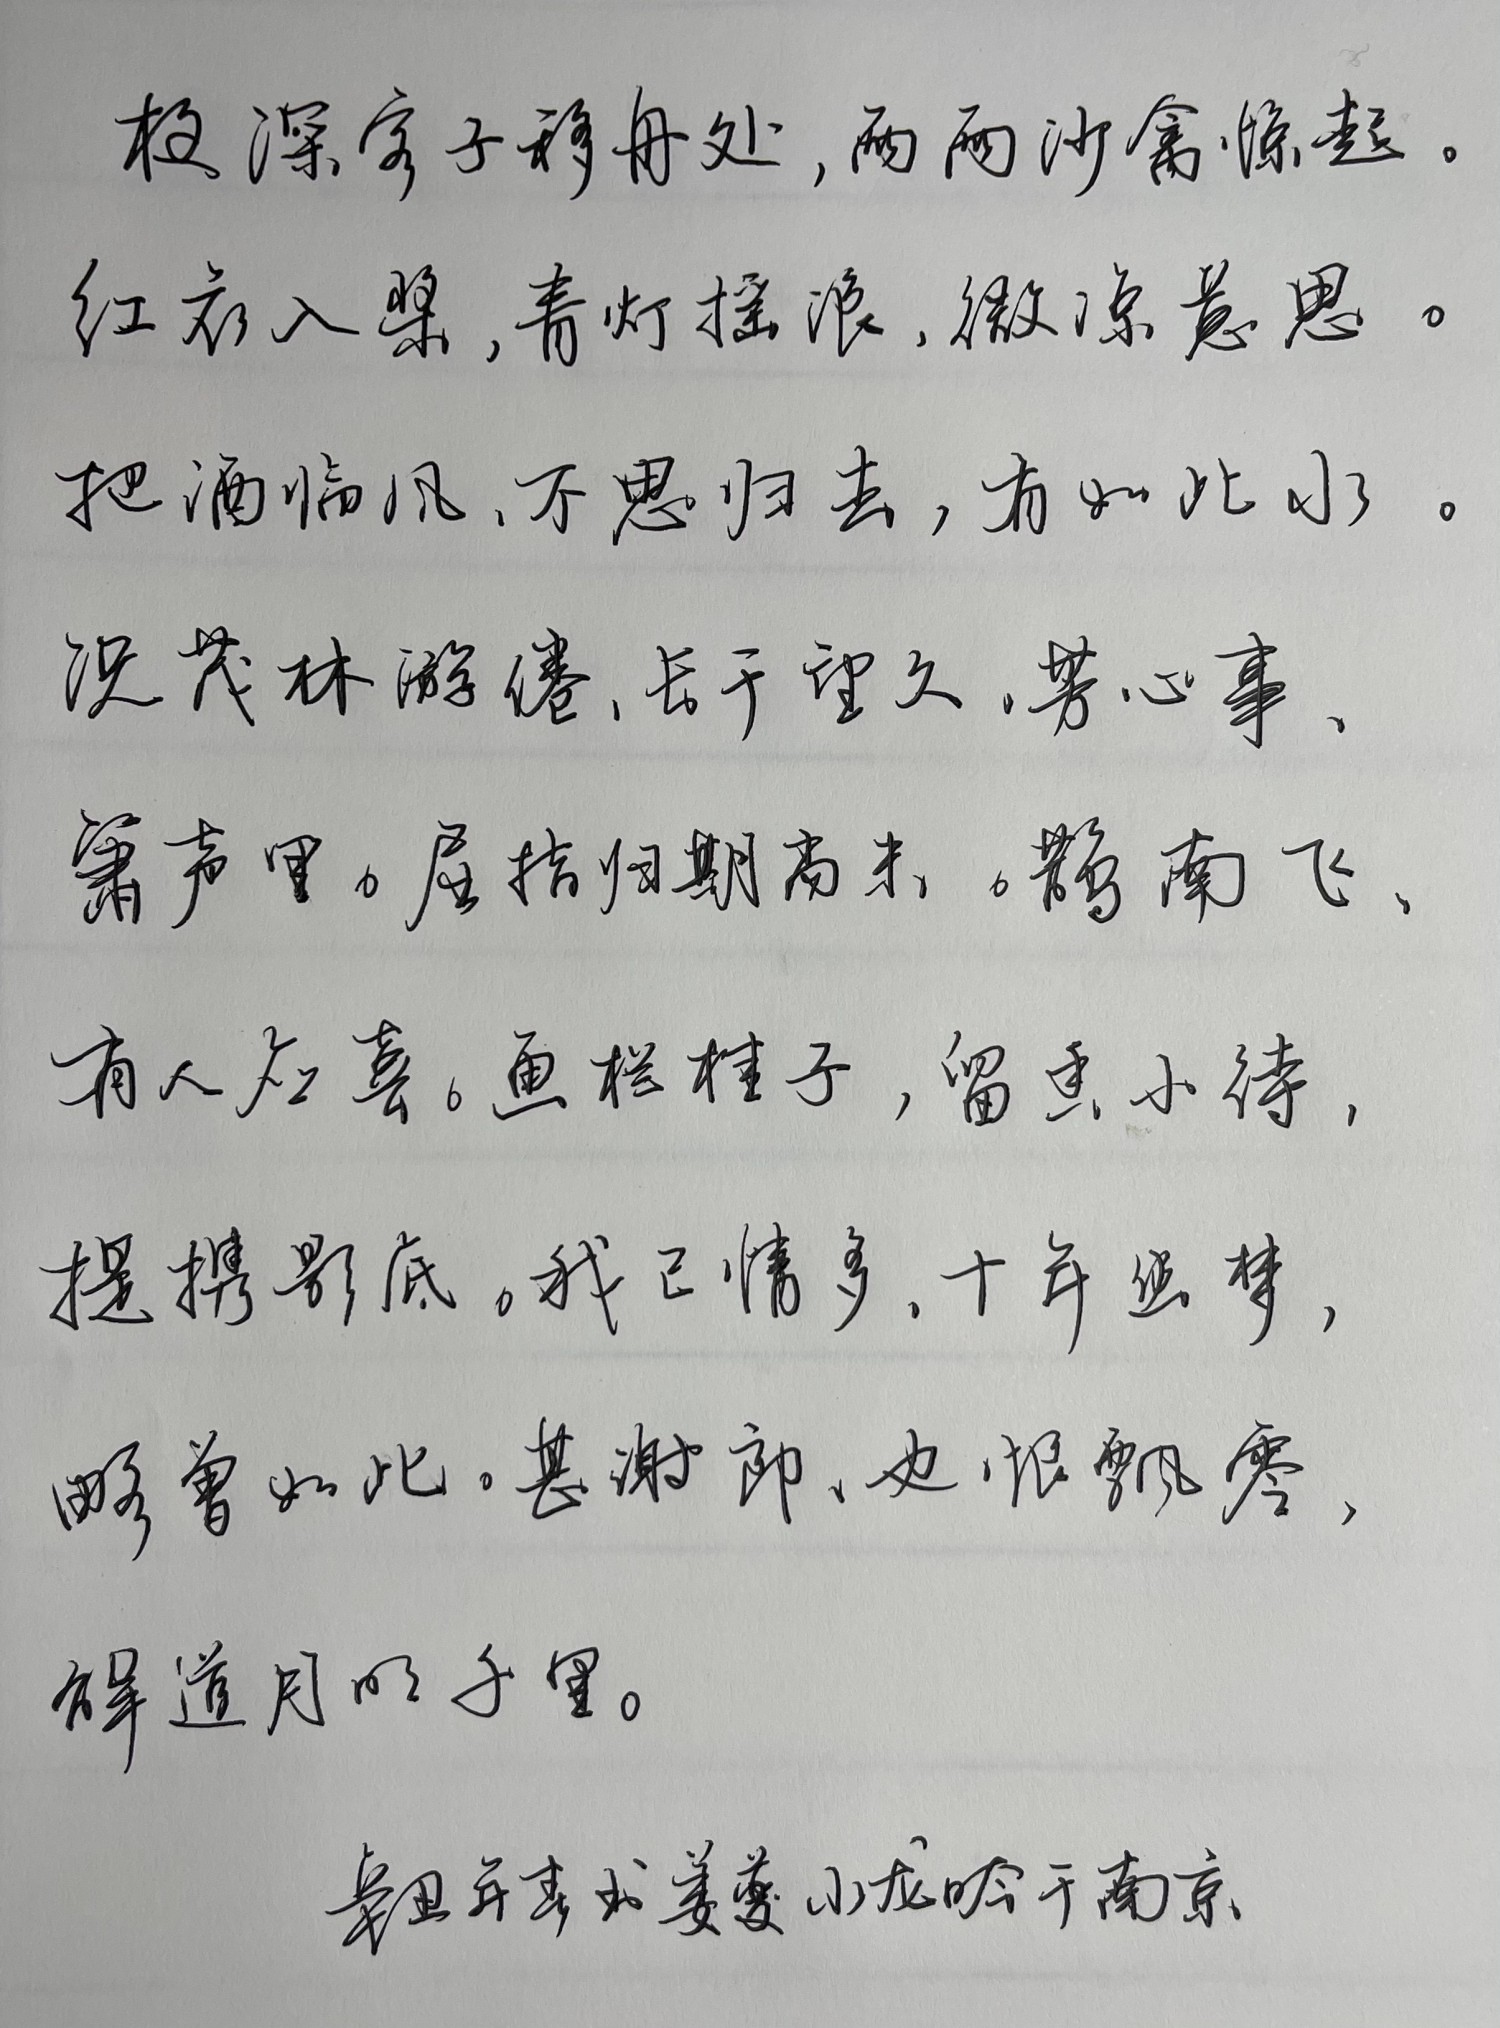 夜深客子移舟处，两两沙禽惊起。
红衣入桨，青灯摇浪，微凉意思。
把酒临风、不思归去，有如此水。
况茂林游倦，长干望久，芳心事、
箫声里。屈指归期尚未。鹊南飞、
有人应喜。画栏桂子，留香小待，
提携影底。我已情多，十年幽梦，
略曾如此。甚谢郎、也恨飘零，
解道月明千里。
辛丑年春书姜夔水龙吟于南京